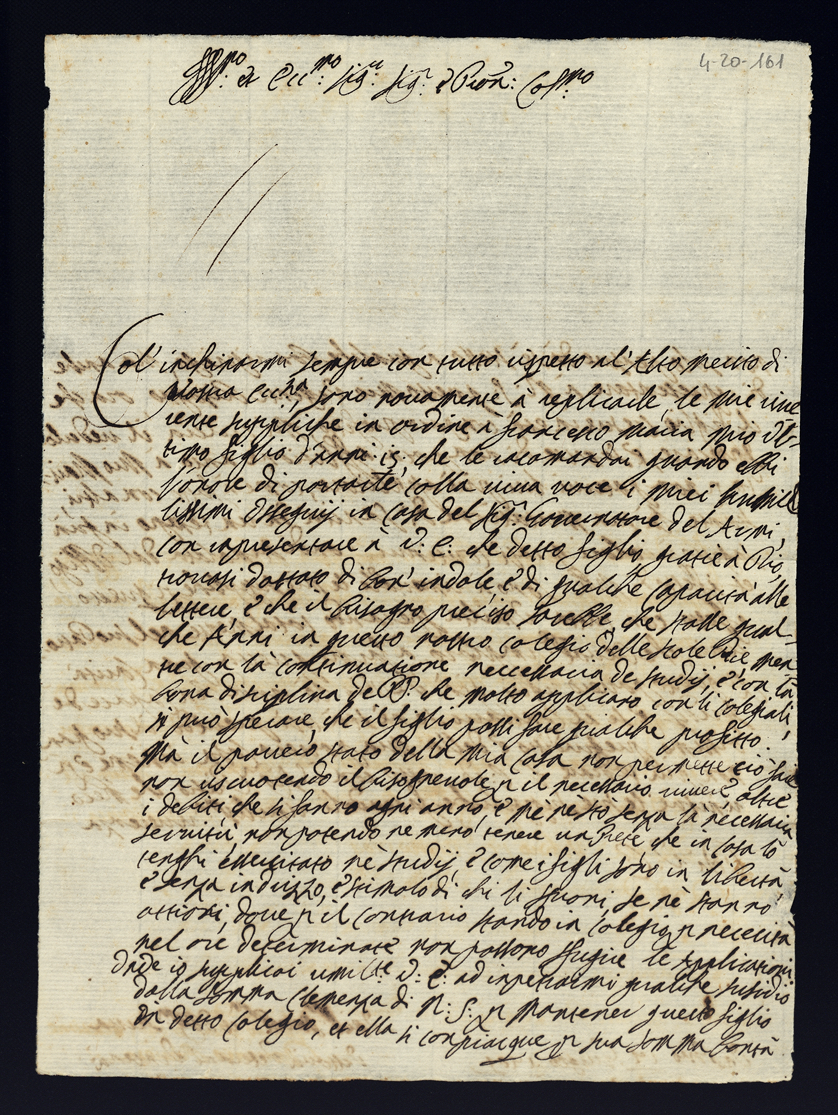 4-20-161
Ill.mo et Ecc.mo Sig.r Sig.r e Pron: Col.mo
Col' inchinarmi sempre con tutto rispetto al' Alto merito di
Vostra Ecc.za sono novamente à replicarle le mie rive
rente suppliche in ordine à Francesco Maria mio Ul-
timo figlio d'anni 15, che le racomandai quando ebbi
l'onore di portarle colla viva voce i miei humili
lissimi osseguij in Casa del Sig.r Governatore del Armi,
con ripresentare à V. E. che detto figlio, gratie à Dio,
trovasi dottato di bon' indole, e di qualche capacità alle
lettere, e che il bisogno preciso sarebbe che stasse qual-
che Anni in questo nostro Colegio delle scole Pie, men
tre con la continuatione neccessaria de studij, e con la
bona disciplina de PP. che molto applicano con li colegiali
si può sperare, che il figlio possi fare qualche profitto.
Mà il povero stato della mia Casa non permette ciò fare
non riscuotendo il bisognevole p il necessario vivere, oltre
i debiti, che si fanno ogni anno, e mè resto senza la necessaria
servitù, non potendo ne meno tenere un Prete che in casa lo
tenghi essercitato nè studij, e come i figli sono in libertà
e senza indrizzo, e stimolo di chi li sproni, se nè stanno
ottiosi, dove p il contrario stando in Colegio, p necessità
nel ore determinate non possono fugire le applicationi
Onde io supplicai umil.te V. E. ad inpetrarmi qualche susidio
dalla somma Clemenza di N: S: p mantener questo figlio
in detto Colegio, et ella si conpiacque p sua somma bontà